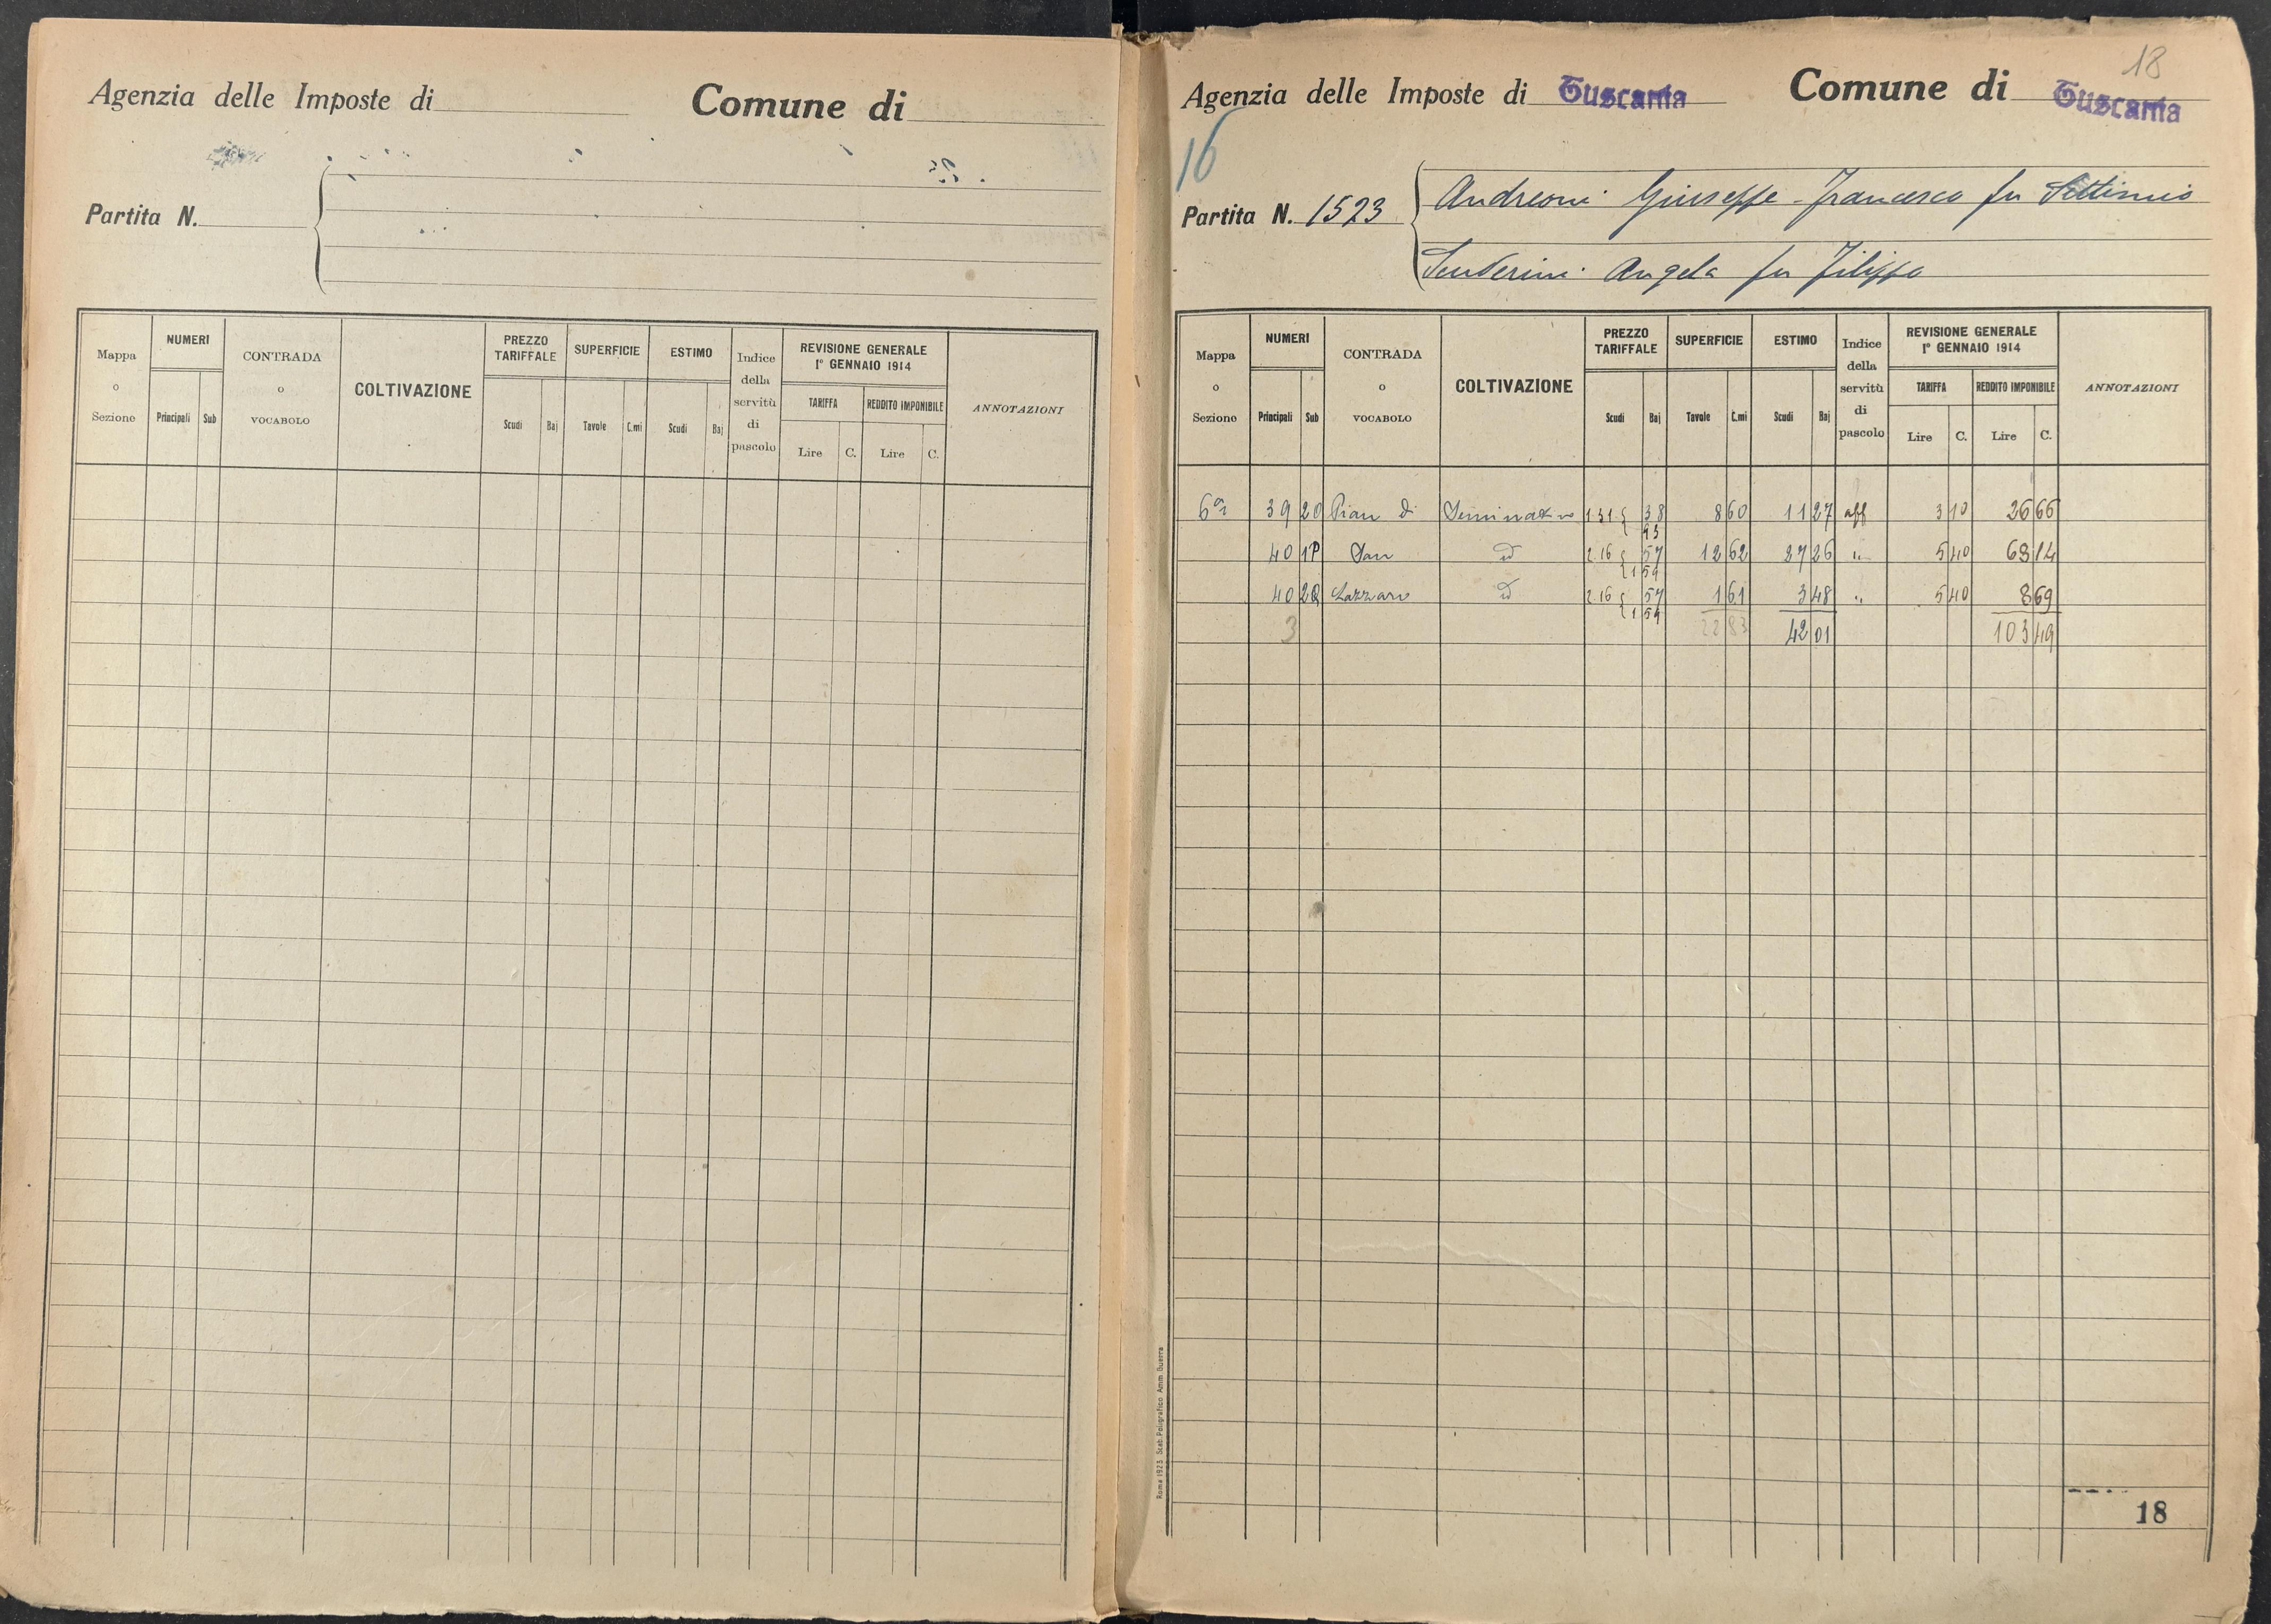 Agenzia delle Imposte di
Comune di
Partita N.
Mappa o Sezione NUMERI Principali Sub CONTRADA o VOCABOLO COLTIVAZIONE PREZZO TARIFFALE Scudi Baj SUPERFICIE Tavole C.mi ESTIMO Scudi Baj Indice della servitù di pascolo REVISIONE GENERALE 1º GENNAIO 1914 TARIFFA Lire C. REDDITO IMPONIBILE Lire C. ANNOTAZIONI
18
Agenzia delle Imposte di Tuscania Comune di Tuscania
16
Partita N. 1523
Andreoni Giuseppe Francesco fu Settimio
Angela fu Filippo
Mappa o Sezione NUMERI Principali Sub CONTRADA o VOCABOLO COLTIVAZIONE PREZZO TARIFFALE Scudi Baj SUPERFICIE Tavole C.mi ESTIMO Scudi Baj Indice della servitù di pascolo REVISIONE GENERALE 1º GENNAIO 1914 TARIFFA Lire C. REDDITO IMPONIBILE Lire C. ANNOTAZIONI
6ª 39 20 Pian di Seminativo 1.31 { 38 8 60 11 27 aff 3 10 26 66
93
40 1P San id 2.16 { 57 12 62 27 26 " 5 40 68 14
1 59
40 2Q Lazzaro id 2.16 { 57 1 61 3 48 " 5 40 8 69
1 59
3 22 83 42 01 103 49
Roma 1923 Stab. Poligrafico Amm. Guerra
18